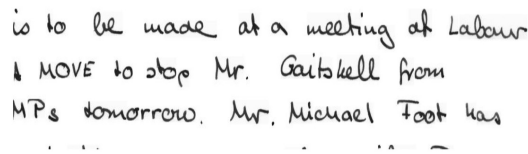 is to be made at a meeting of Labour
A MOVE to stop Mr. Gaitskell from
MPs tomorrow. Mr. Michael Foot has